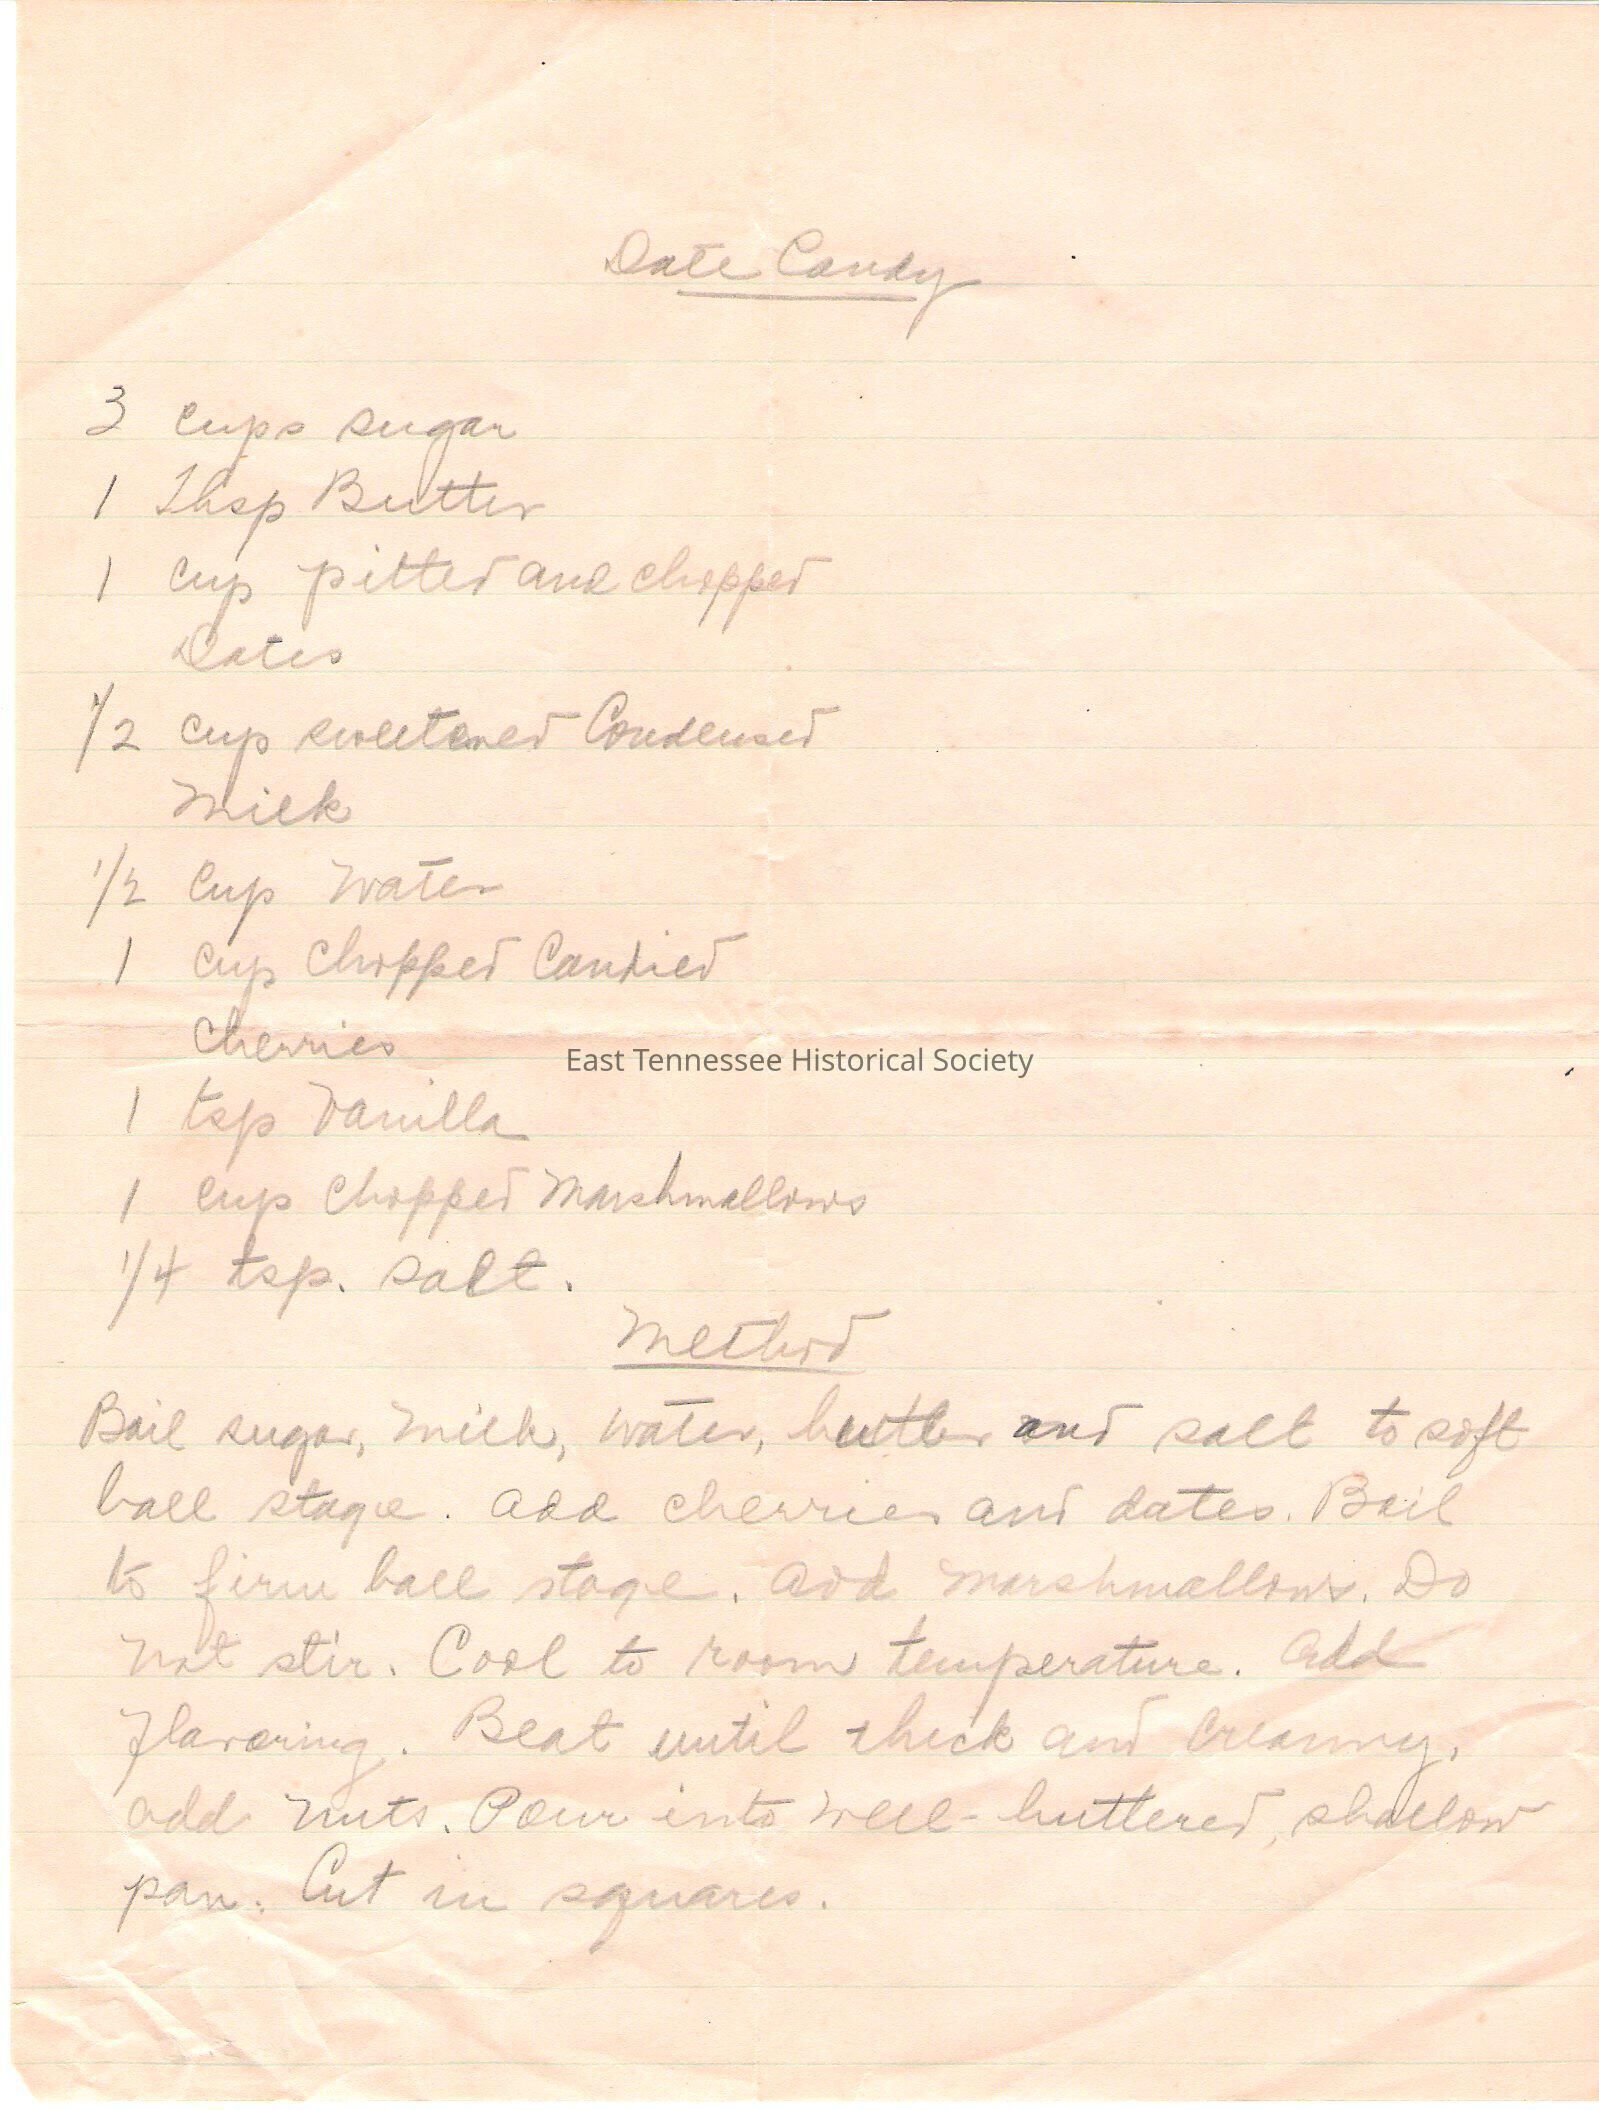 Date Candy
3 cups sugar
1 Tbsp Butter
1 cup pitted and chopped
Dates
1/2 cup sweetened Condensed
Milk
1/2 Cup Water
1 cup Chopped Candied
Cherries
East Tennessee Historical Society
1 tsp Vanilla
1 cup Chopped Marshmallows
1/4 tsp. salt.
Method
Boil sugar, milk, water, butter and salt to soft
ball stage. add cherries and dates. Boil
to firm ball stage. add marshmallows. Do
not stir. Cool to room temperature. Add
flavoring. Beat until thick and Creamy,
add nuts. Pour into well-buttered, shallow
pan. Cut in squares.